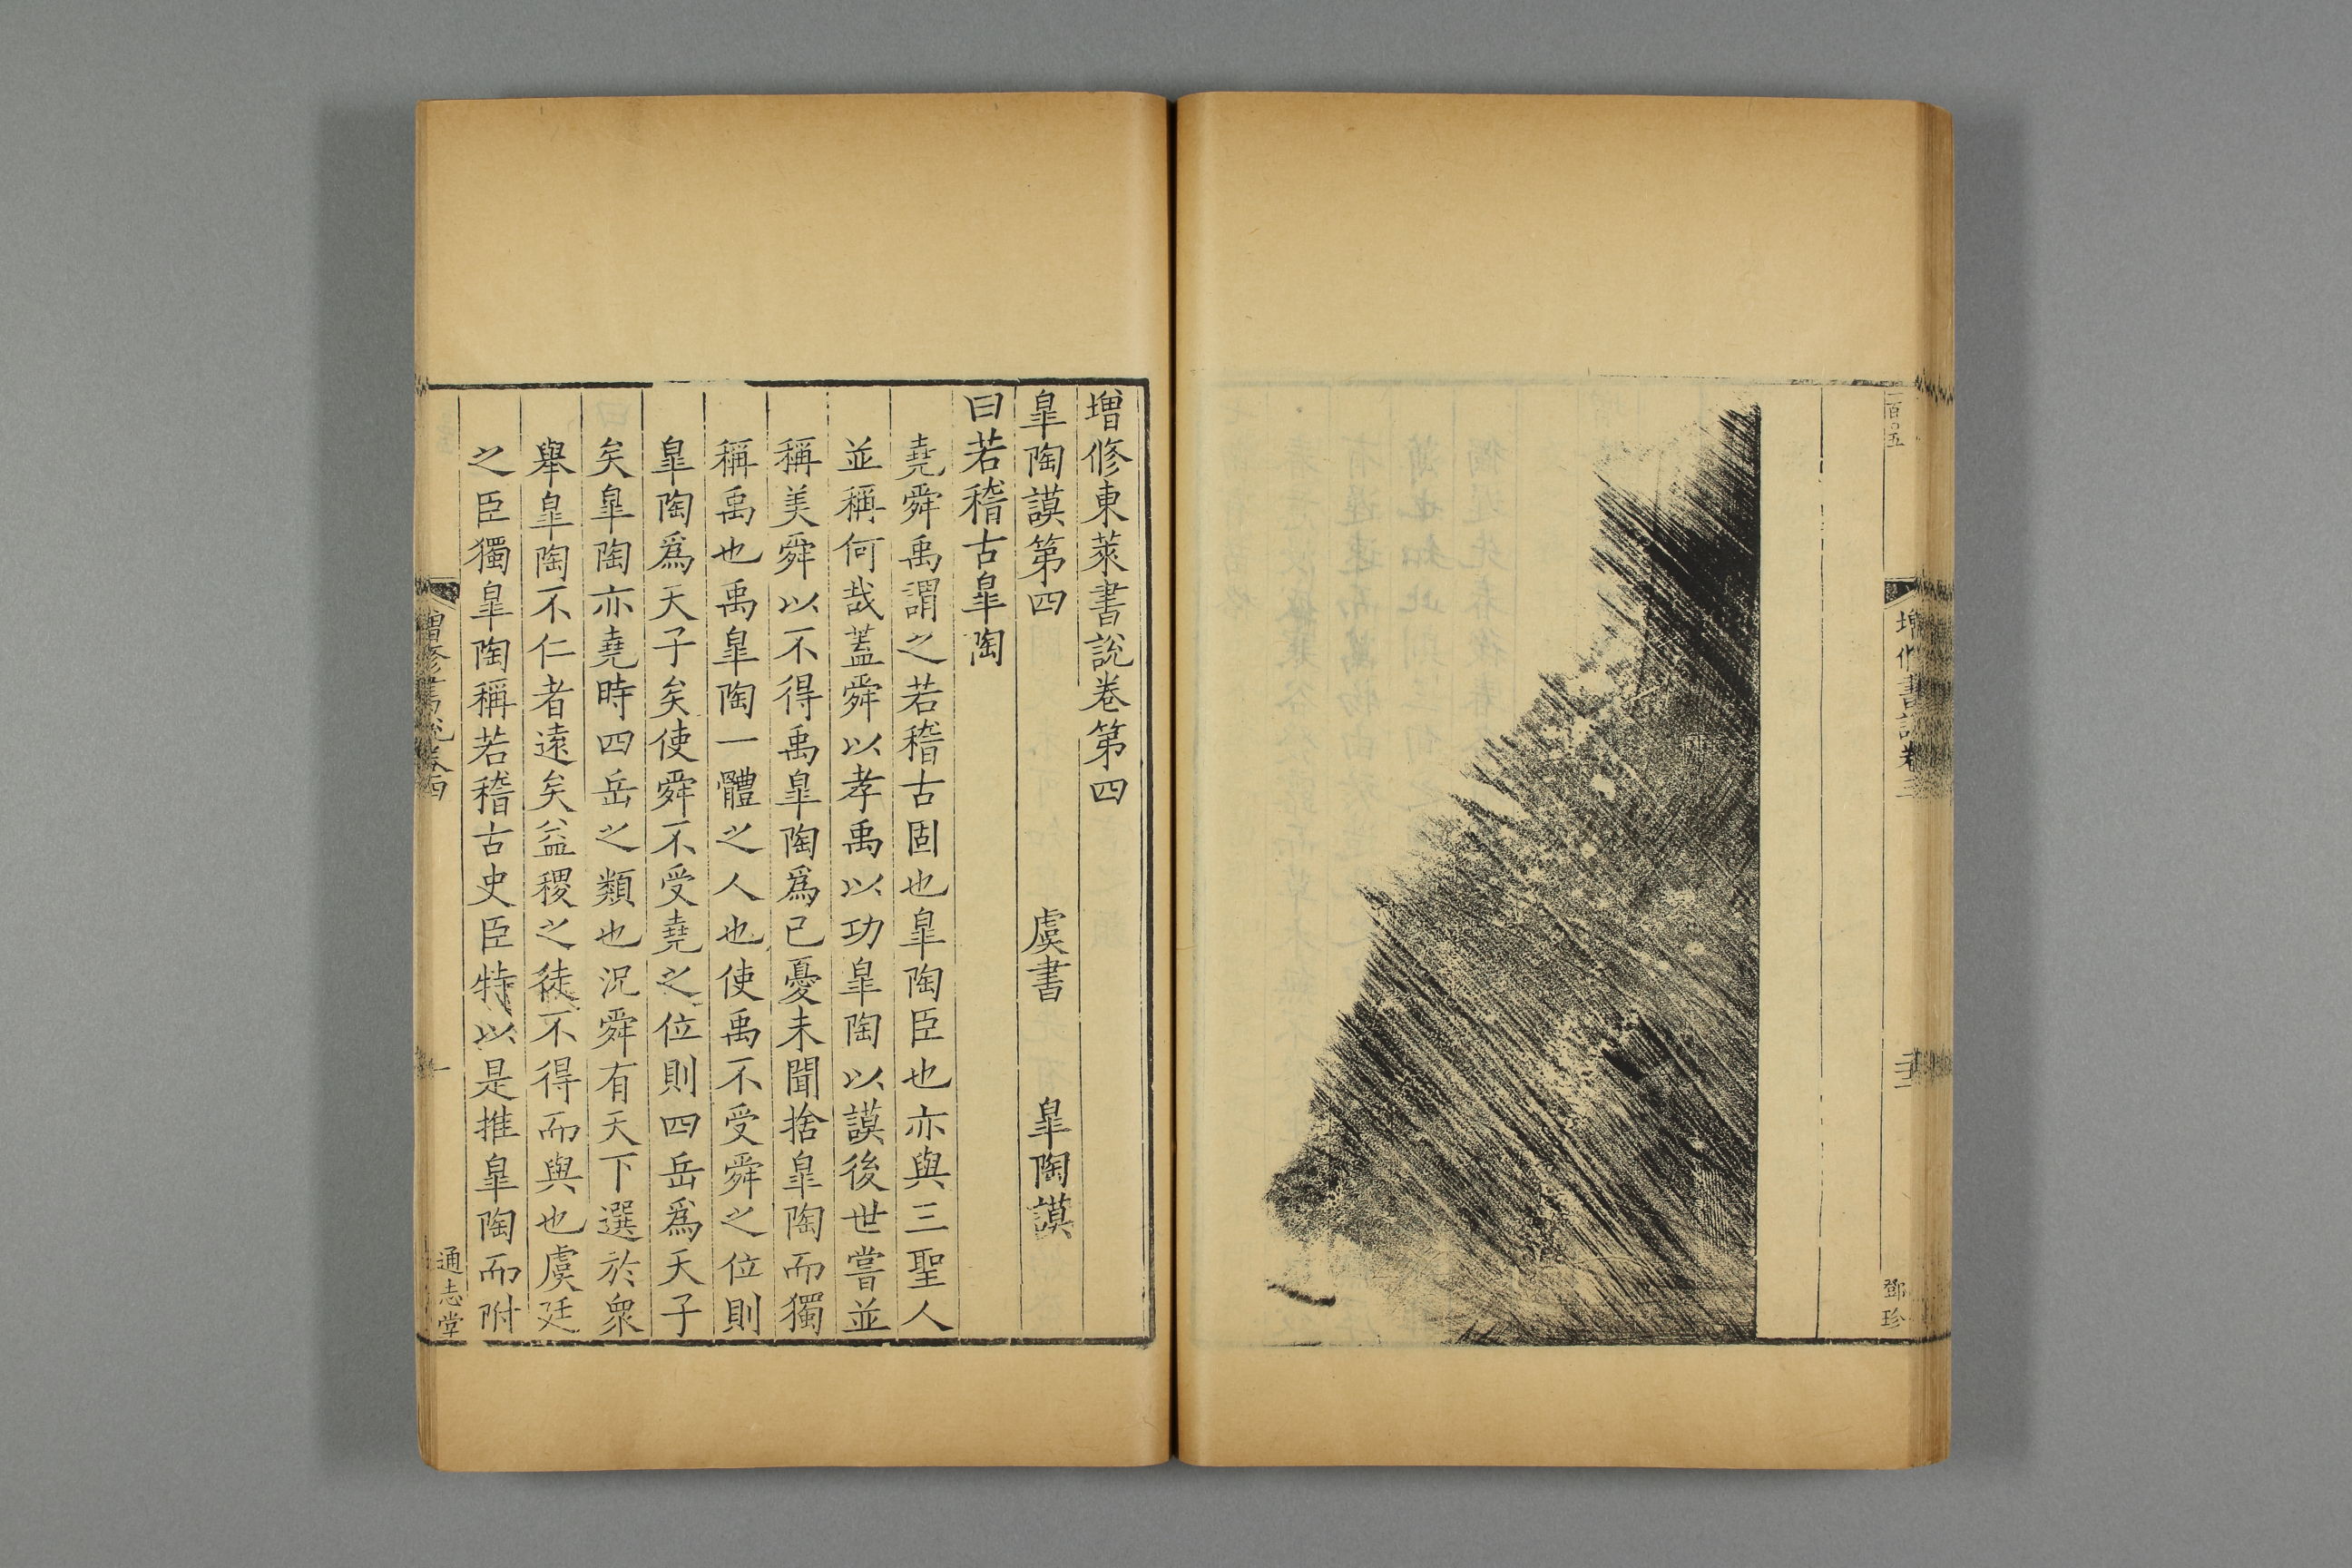 一百〇五
鄧珍
增修東萊書說卷第四
皐陶謨第四　虞書　皐陶謨
曰若稽古皐陶
堯舜禹謂之若稽古固也皐陶臣也亦與三聖人
並稱何哉蓋舜以孝禹以功皐陶以謨後世嘗並
稱美舜以不得禹皐陶爲已憂未聞捨皐陶而獨
稱禹也禹皐陶一體之人也使禹不受舜之位則
皐陶爲天子矣使舜不受堯之位則四岳爲天子
矣皐陶亦堯時四岳之類也況舜有天下選於衆
舉皐陶不仁者遠矣益稷之徒不得而與也虞廷
之臣獨皐陶稱若稽古史臣特以是推皐陶而附
增修書說卷四
一
通志堂